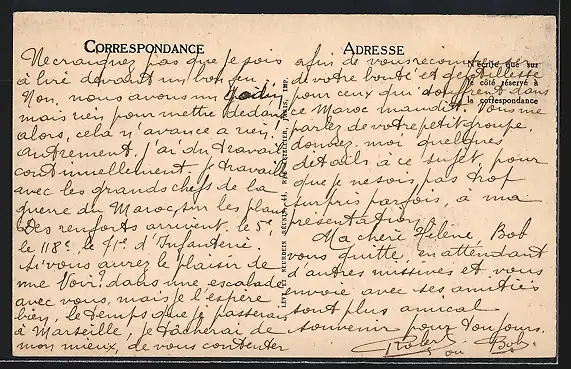 CORRESPONDANCE
Ne craignez pas que je sois
à lire devant un bon feu.
Non, nous avons un Godin,
mais rien pour mettre dedans
alors, cela n'avance a rien!
autrement, j'ai du travail
continuellement, je travaille
avec les grands chefs de la
guerre du Maroc, sur les plans
Des renforts arrivent. le 5e
le 118e, le 91e d'Infanterie.
Si vous aurez le plaisir de
me Voir? dans une escalade
avec vous, mais je l'espère
bien, le temps que je passerai
à Marseille, je tâcherai de
mon mieux, de vous contenter
LEVY ET NEURDEIN RÉUNIS, 44, RUE LETELLIER, PARIS, IMP.
ADRESSE
N'écrire que sur
le côté réservé à
la correspondance
afin de vous récompenser
de votre bonté et gentillesse
pour ceux qui souffrent dans
ce Maroc maudit. Vous me
parlez de votre petit groupe,
donnez-moi quelques
details à ce sujet, pour
que je ne sois, pas trop
surpris parfois, à ma
présentation.
Ma chère Hélène, Bob
vous quitte, en attendant
d'autres missives et vous
envoie avec ses amitiés
sont plus amical
souvenir pour toujours.
Robert ou Bob.